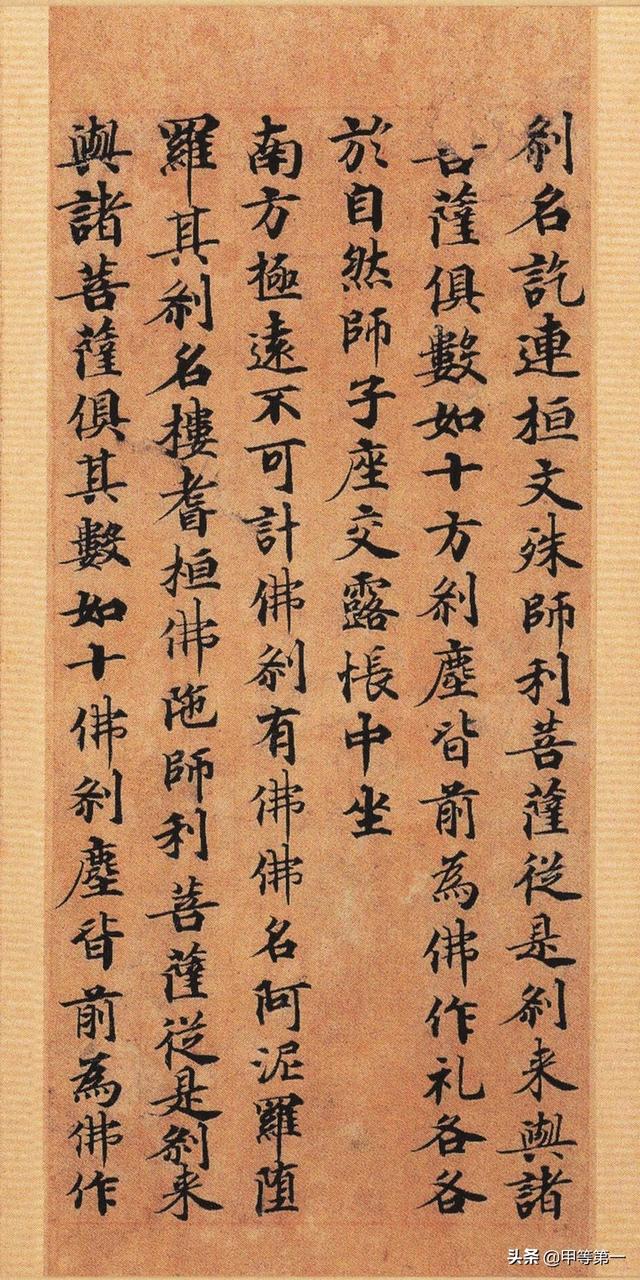 刹名訖連桓文殊師利菩薩從是刹来與諸
菩薩俱數如十方刹塵皆前為佛作礼各各
於自然師子座交露帳中坐
南方極遠不可計佛刹有佛佛名阿泥羅墮
羅其刹名樓耆桓佛陁師利菩薩從是刹来
與諸菩薩俱其數如十佛刹塵皆前為佛作
头条 @甲等第一